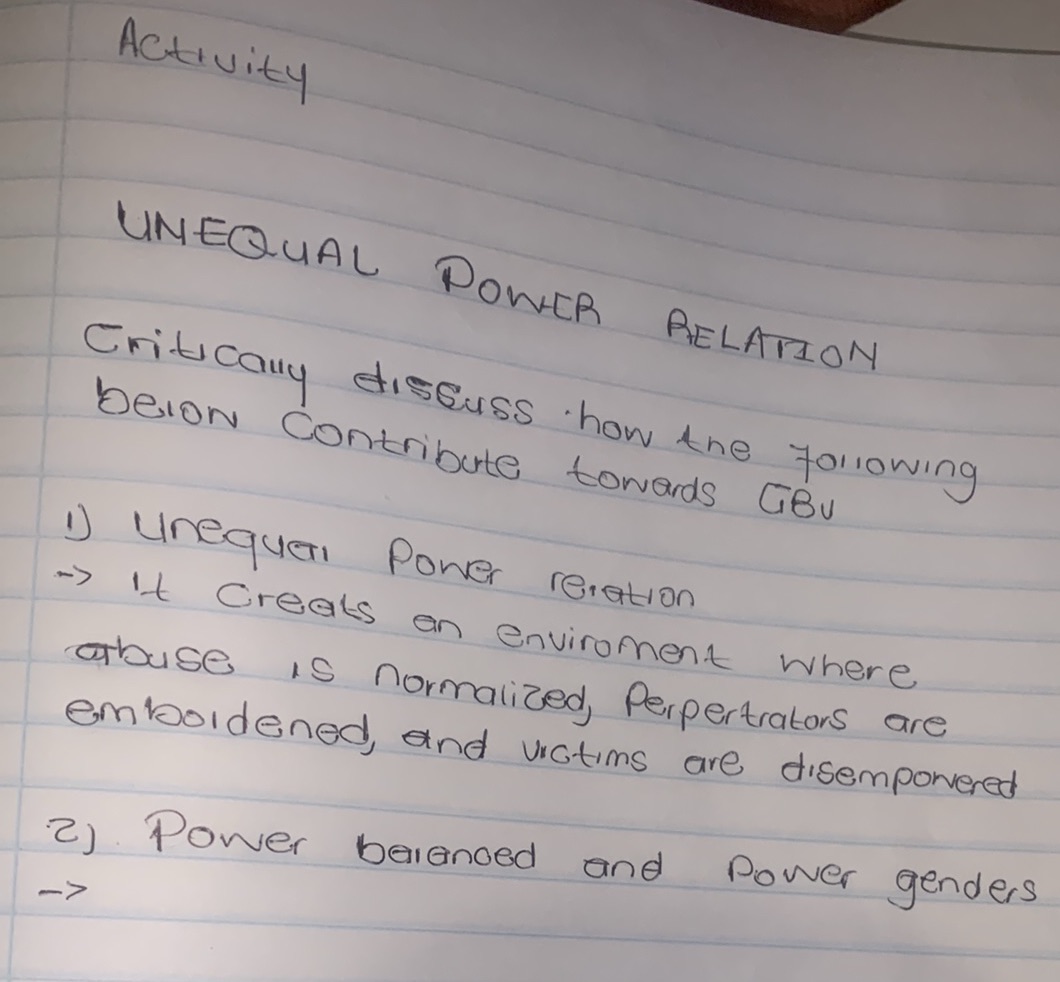 Activity
UNEQUAL POWER RELATION
Critically discuss how the following
below contribute towards GBV
1) Unequal Power relation
-> It Creats an enviroment where
abuse is normalized, Perpertrators are
emboldened, and victims are disempowered
2) Power balanced and Power genders
->